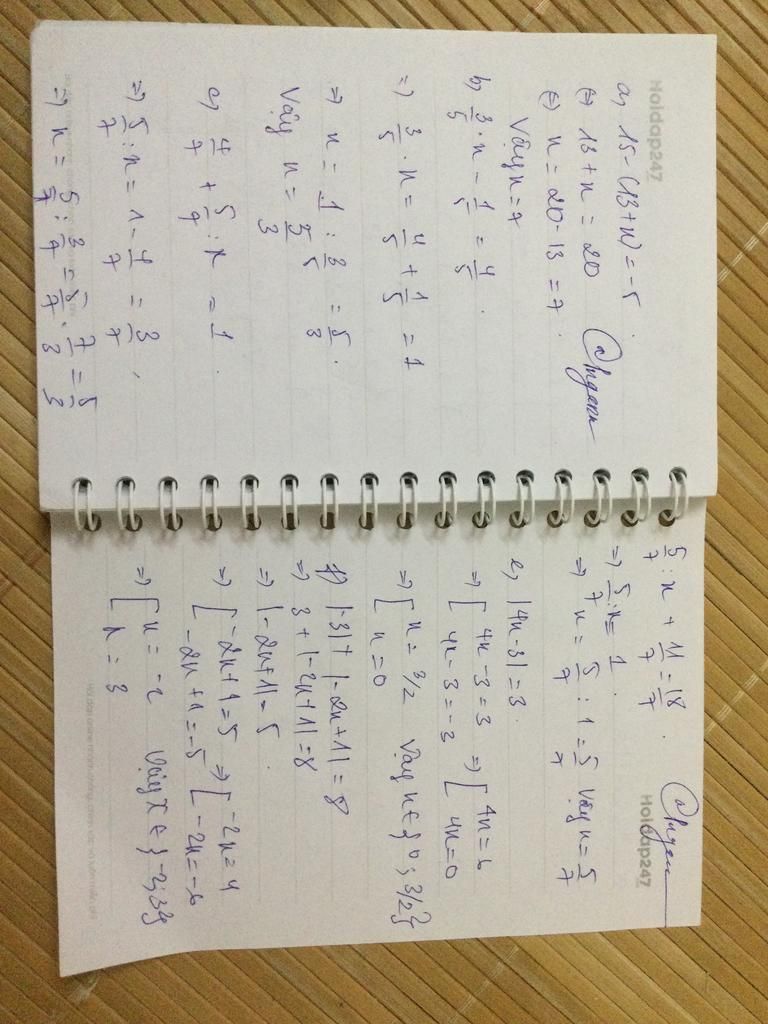 Hoidap247
a, 15-(13+x) = -5.
(=) 13+x = 20
(=) x = 20-13 = 7.
Vậy x = 7
b, 3/5 . x - 1/5 = 4/5.
=) 3/5 . x = 4/5 + 1/5 = 1
=) x = 1 : 3/5 = 5/3.
Vậy x = 5/3
c, 4/7 + 5/7 : x = 1.
=) 5/7 : x = 1 - 4/7 = 3/7.
=) x = 5/7 : 3/7 = 5/7 . 7/3 = 5/3
Hoidap247
5/7 : x + 11/7 = 18/7.
=) 5/7 : x = 1.
=) x = 5/7 : 1 = 5/7 Vậy x = 5/7
e, |4x-3| = 3.
=) [ 4x-3 = 3 =) [ 4x = 6
4x-3 = -3 4x = 0
=) [ x = 3/2 Vậy x ∈ {0 ; 3/2}
x = 0
f) |-3| + |-2x+1| = 8
=) 3 + |-2x+1| = 8
=) |-2x+1| = 5.
=) [ -2x+1 = 5 =) [ -2x = 4
-2x+1 = -5 -2x = -6
=) [ x = -2 Vậy x ∈ {-2; 3}
x = 3